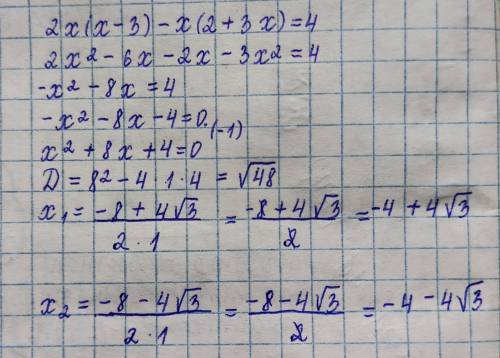 2x(x-3)-x(2+3x)=4
2x²-6x-2x-3x²=4
-x²-8x=4
-x²-8x-4=0 ·(-1)
x²+8x+4=0
D=8²-4·1·4=√48
x₁=(-8+4√3)/(2·1)=(-8+4√3)/2=-4+4√3
x₂=(-8-4√3)/(2·1)=(-8-4√3)/2=-4-4√3